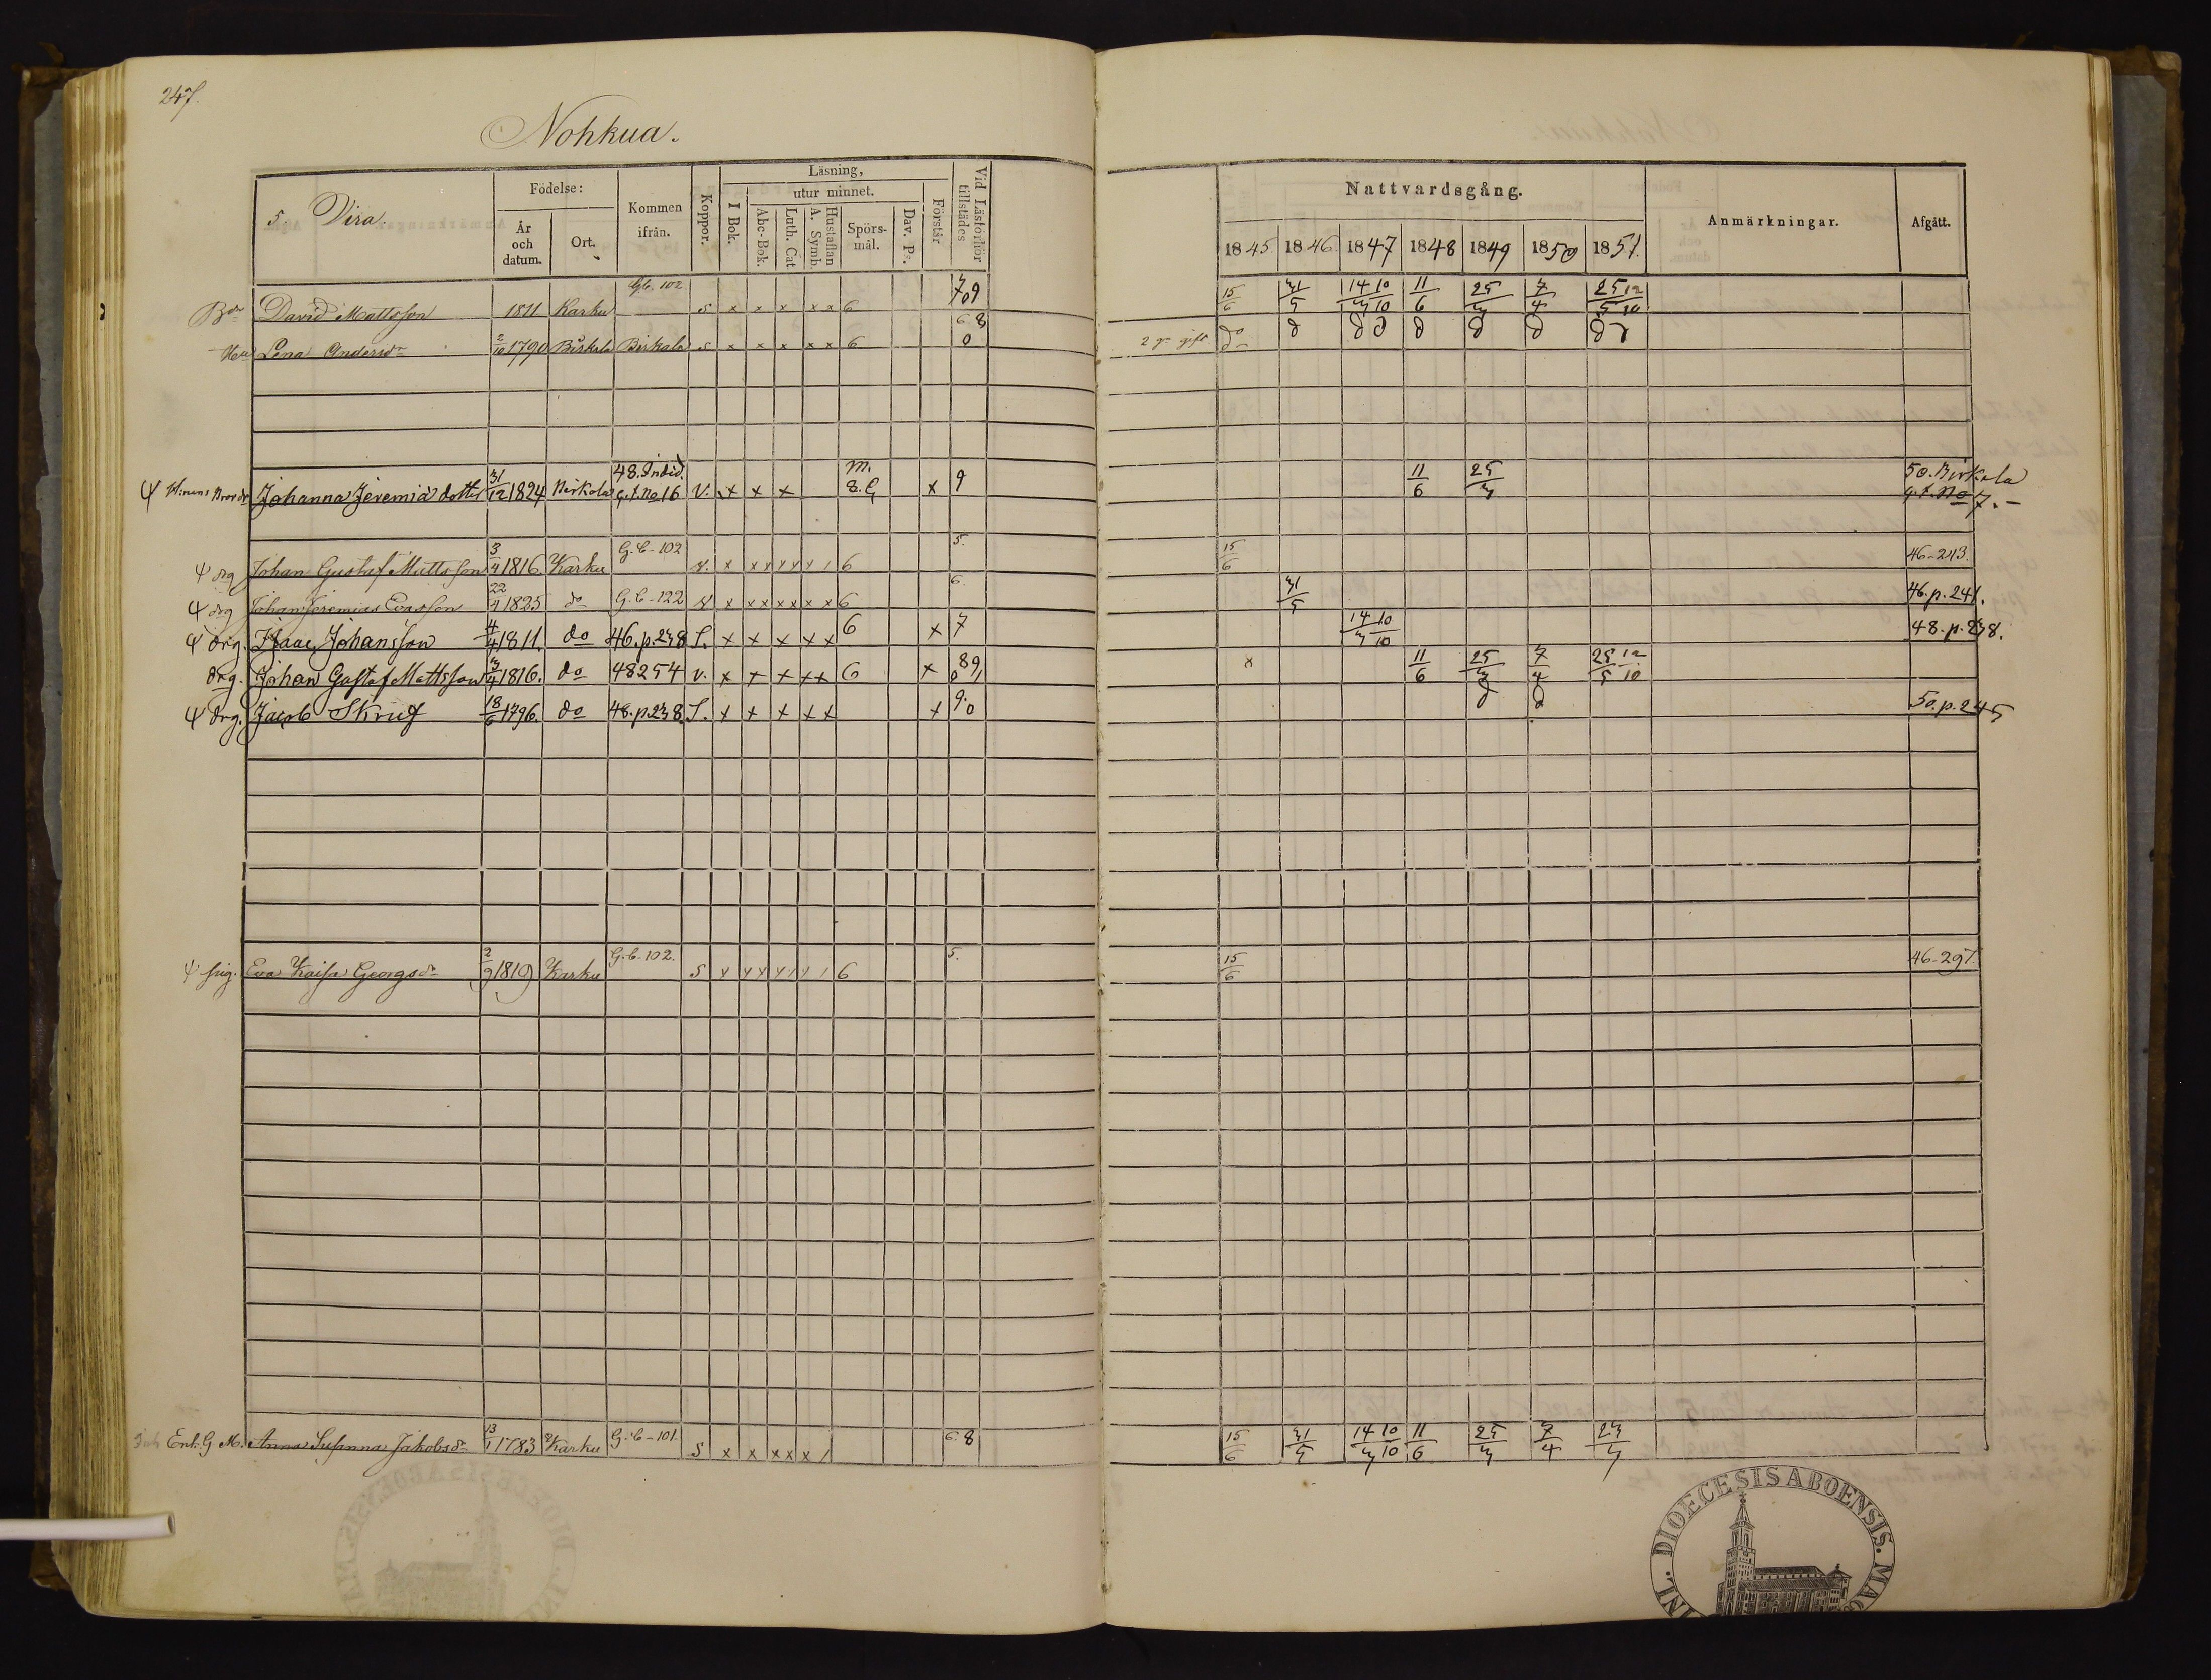 247.
Nohkua.
5. Vira.
Födelse:
År och datum.
Ort.
Kommen ifrån.
Koppor.
Läsning,
I Bok.
utur minnet.
Abc-Bok.
Luth. Cat
Hustaflan A. Symb.
Spörs- mål.
Dav. Ps.
Förstår
Vid Läsförhör tillstädes
Nattvardsgång.
1845 1846 1847 1848 1849 1850 1851.
Anmärkningar.
Afgått.
Bdn David Mattsson 1811 Karku G.b. 102 s x x x x x 6 7 0 9 15/6 31/5 14/3 10/10 11/6 25/3 7/4 25/5 12/10
Hu Lena Andersdr 2/10 1790 Birkala Birkala s x x x x x 6 6 8 0 2 gr gift do
48. Indid. m. 50. Birkala
Johanna Jeremiä dotter 31/12 1824 Birkala g.t. No 16 v. x x x x 9 11/6 25/3 g.t. No 7.
ψ drg Johan Gustaf Mattsson 3/4 1816 Karku G.b-102 v. x x x x x x 6 5. 15/6 46-243
ψ drg Johan Jeremias Evasson 22/4 1825 do G.b-122 v x x x x x x x 6 6. 31/5 46.p.241.
ψ drg. Isaac Johansson 4/4 1811. do 46.p.238 S. x x x x x 6 x 7 14/3 10/10 48.p.238.
drg. Johan Gustaf Mattsson 3/4 1816. do 48 254 v. x x x x x 6 x 8 9 0 x 11/6 25/3 7/4 25/5 12/10
ψ drg. Jacob Skrif 18/6 1796. do 48.p.238 S. x x x x x x 9. 0 50.p.245
ψ pig. Eva Kaisa Georgsdr 2/9 1819 Karku G.b-102. s x x x x x x 6 5. 15/6 46-297.
Enk. G M. Anna Susanna Jakobsdr 13/1 1783 Karku G.b-101. s x x x x x 6. 8 15/6 31/5 14/3 10/10 11/6 25/3 7/4 23/3
DIOECESIS ABOENSIS. MAG